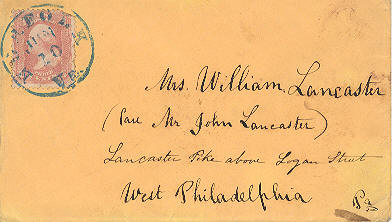 NORFOLK
JUN
10
VA.
Mrs. William Lancaster
(Care Mr John Lancaster)
Lancaster Pike above Logan Street
West Philadelphia
Pa